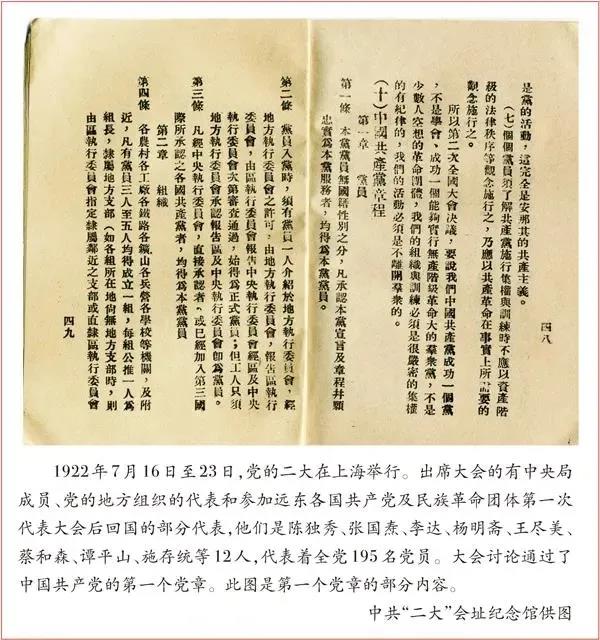 四八
是黨的活動，這完全是安那其的共產主義。
(七)個個黨員須了解共產黨施行集權與訓練時不應以資產階
級的法律秩序等觀念施行之，乃應以共產革命在事實上所需要的
觀念施行之。
所以第二次全國大會決議，要說我們中國共產黨成功一個黨
，不是學會、成功一個能夠實行無產階級革命大的羣衆黨，不是
少數人空想的革命團體，我們的組織與訓練必須是很嚴密的集權
的有紀律的，我們的活動必須是不離開羣衆的。
(十)中國共產黨章程
第一章 黨員
第一條 本黨黨員無國籍性別之分，凡承認本黨宣言及章程幷願
忠實爲本黨服務者，均得爲本黨黨員。
第二條 黨員入黨時，須有黨員一人介紹於地方執行委員會，經
地方執行委員會之許可，由地方執行委員會，報告區執行
委員會，由區執行委員會報告中央執行委員會經區及中央
執行委員會次第審查通過，始得爲正式黨員；但工人只須
地方執行委員會承認報告區及中央執行委員會卽爲黨員。
第三條 凡經中央執行委員會，直接承認者、或已經加入第三國
際所承認之各國共產黨者，均得爲本黨黨員
第二章 組織
第四條 各農村各工廠各鐵路各鑛山各兵營各學校等機關，及附
近，凡有黨員三人至五人均得成立一組，每組公推一人爲
組長，隸屬地方支部（如各組所在地尙無地方支部時，則
由區執行委員會指定隸屬鄰近之支部或直隸區執行委員會
四九
1922年7月16日至23日，党的二大在上海举行。出席大会的有中央局
成员、党的地方组织的代表和参加远东各国共产党及民族革命团体第一次
代表大会后回国的部分代表，他们是陈独秀、张国焘、李达、杨明斋、王尽美、
蔡和森、谭平山、施存统等12人，代表着全党195名党员。大会讨论通过了
中国共产党的第一个党章。此图是第一个党章的部分内容。
中共“二大”会址纪念馆供图